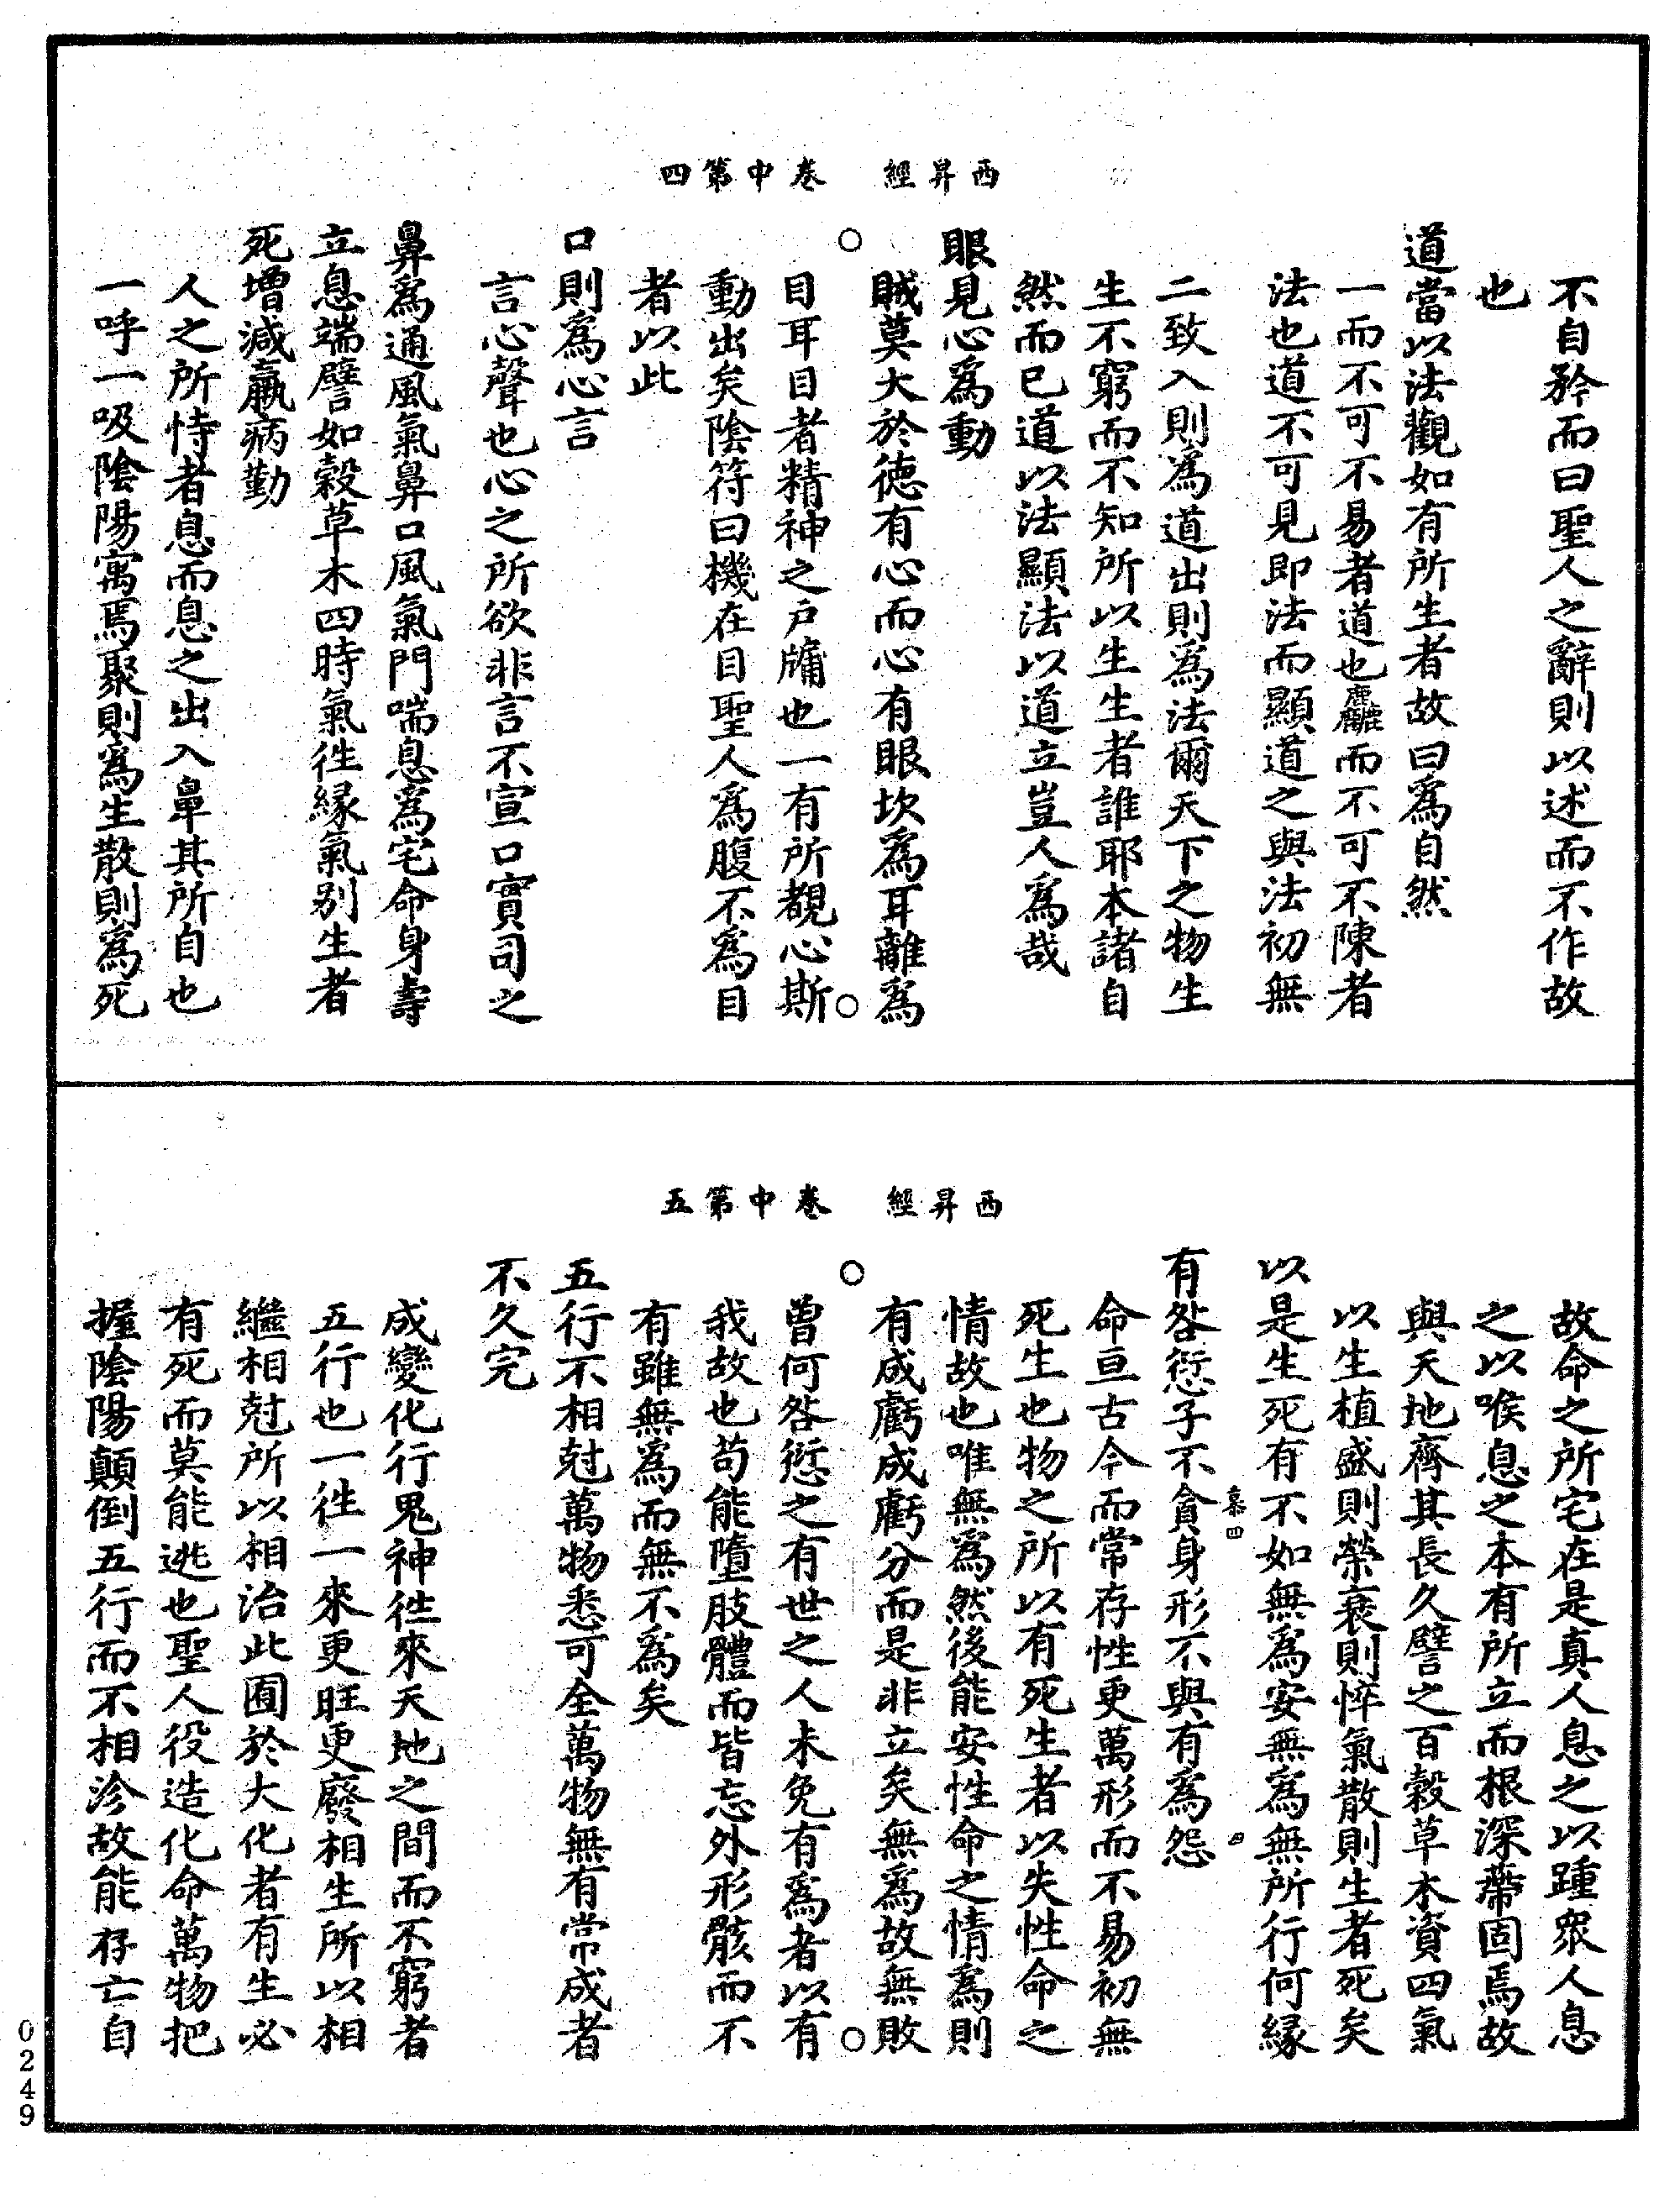 西昇經　卷中第四
不自矜而曰聖人之辭則以述而不作故
也
道當以法觀如有所生者故曰爲自然
一而不可不易者道也麤而不可不陳者
法也道不可見即法而顯道之與法初無
二致入則爲道出則爲法爾天下之物生
生不窮而不知所以生生者誰耶本諸自
然而已道以法顯法以道立豈人爲哉
眼見心爲動
賊莫大於德有心而心有眼坎爲耳離爲
目耳目者精神之戶牖也一有所覩心斯
動出矣陰符曰機在目聖人爲腹不爲目
者以此
口則爲心言
言心聲也心之所欲非言不宣口實司之
鼻爲通風氣鼻口風氣門喘息爲宅命身壽
立息端譬如穀草木四時氣徃緣氣别生者
死增減羸病勤
人之所恃者息而息之出入鼻其所自也
一呼一吸陰陽寓焉聚則爲生散則爲死
西昇經　卷中第五
故命之所宅在是真人息之以踵衆人息
之以喉息之本有所立而根深蔕固焉故
與天地齊其長久譬之百穀草木資四氣
以生植盛則榮衰則悴氣散則生者死矣
以是生死有不如無爲安無爲無所行何緣
慕四　四
有咎愆子不貪身形不與有爲怨
命亘古今而常存性更萬形而不易初無
死生也物之所以有死生者以失性命之
情故也唯無爲然後能安性命之情爲則
有成虧成虧分而是非立矣無爲故無敗
曽何咎愆之有世之人未免有爲者以有
我故也苟能墮肢體而皆忘外形骸而不
有雖無爲而無不爲矣
五行不相尅萬物悉可全萬物無有常成者
不久完
成變化行鬼神徃來天地之間而不窮者
五行也一徃一來更旺更廢相生所以相
繼相尅所以相治此囿於大化者有生必
有死而莫能逃也聖人役造化命萬物把
握陰陽顛倒五行而不相沴故能存亡自
0249